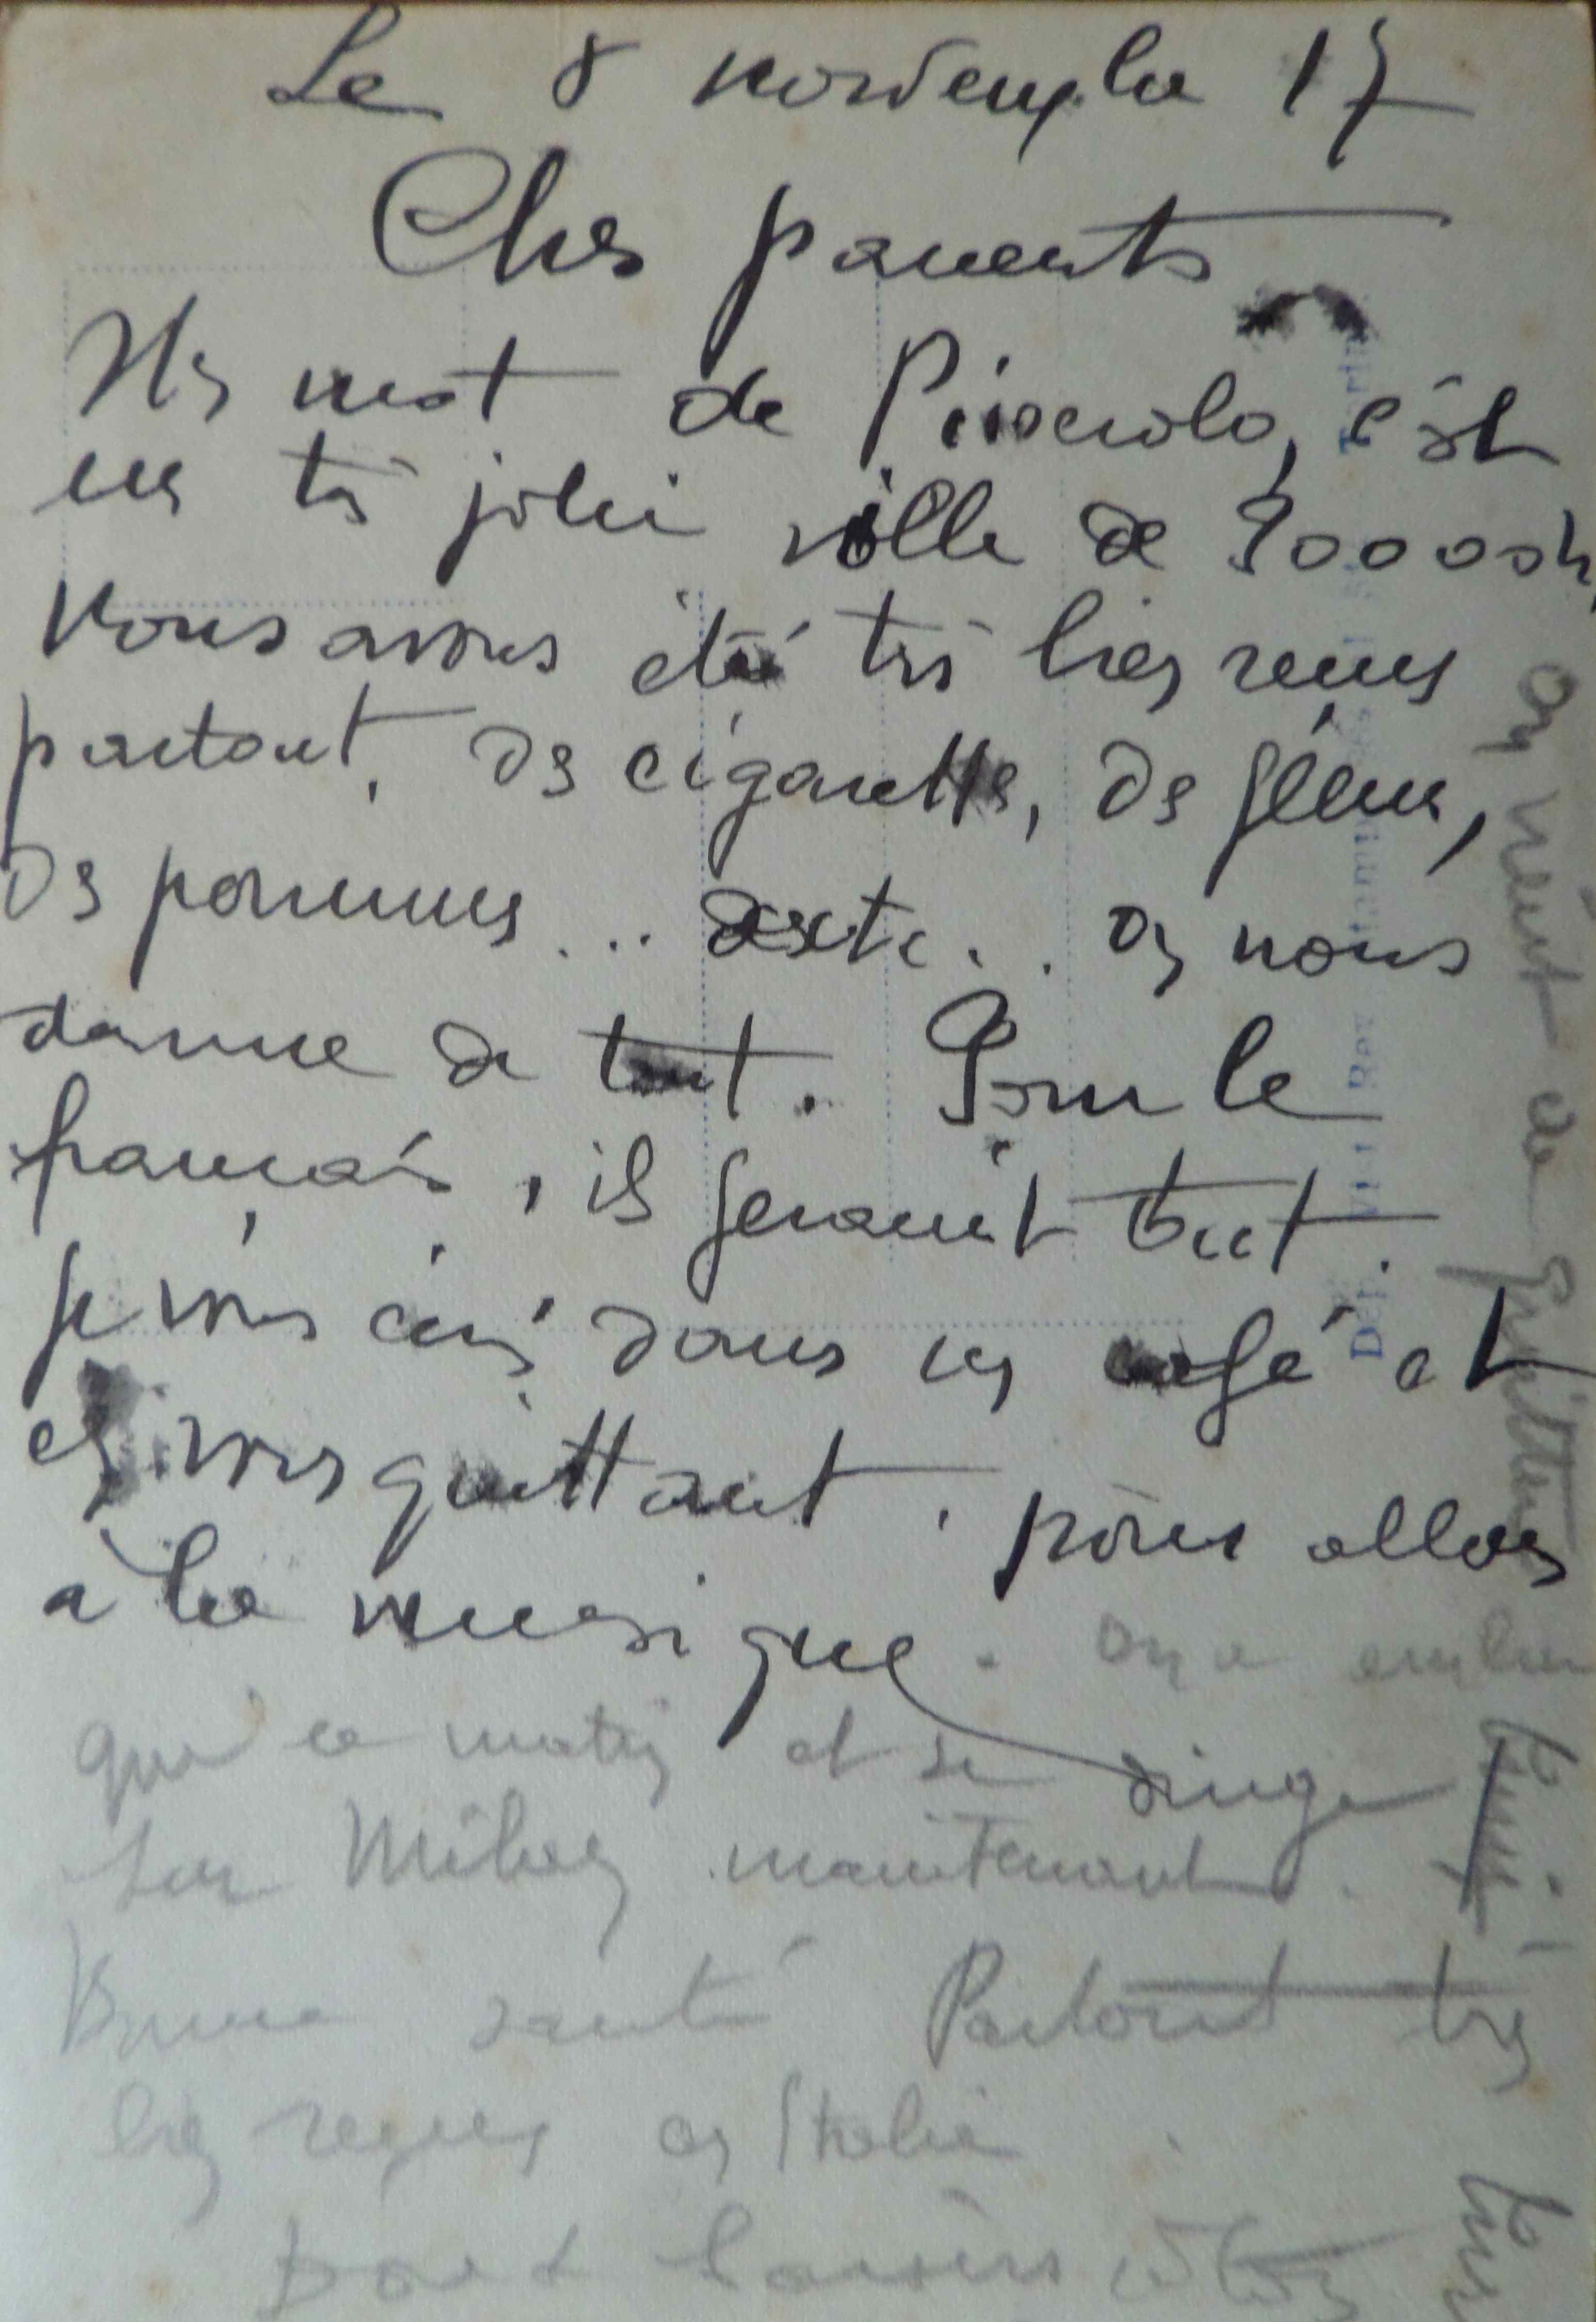 Le 8 novembre 17
Chers parents
Un mot de Pinerolo, c'est
une très jolie ville de 30000 h,
Nous avons été très bien reçus
partout, des cigarettes, des fleurs,
des pommes... etc.. On nous
donne de tout. Pour le
français, ils feraient tout.
Je vous écris dans un café et
en vous quittant, pour aller
à la musique. On a
que ce matin et se dirige
sur Milan maintenant.
Bonne santé Partout très
bien reçus en Italie
Bons baisers
On vient de Turin.